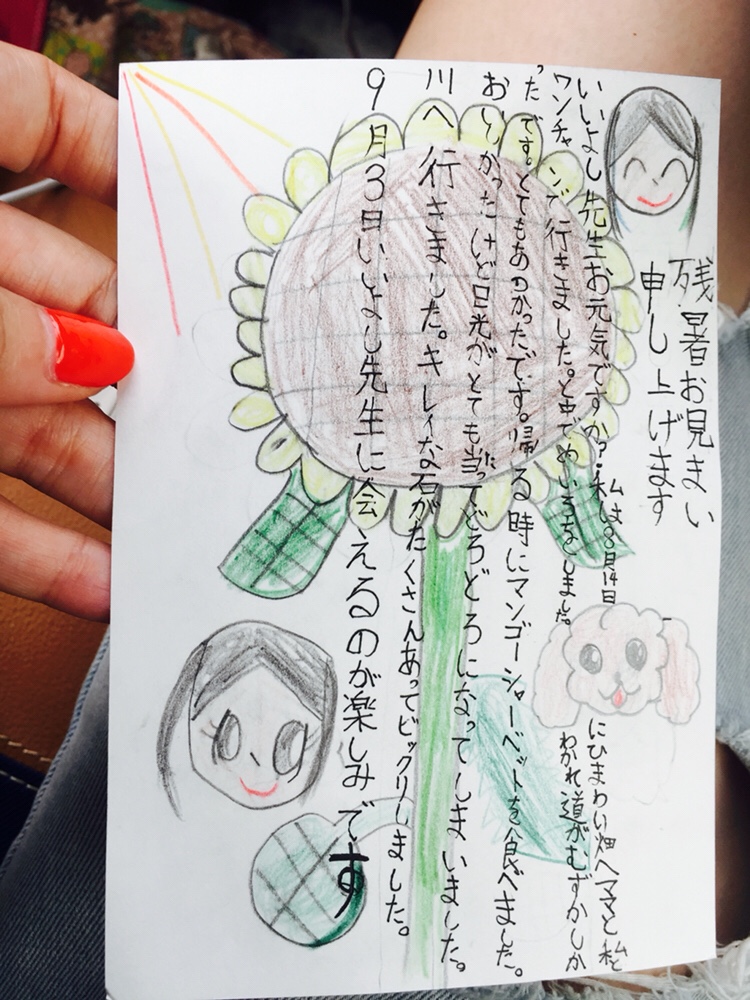 残暑お見まい
申し上げます
いいよし先生お元気ですか?私は8月14日にひまわい畑へママと私と
ワンチャンで行きました。と中でめいろをしました。わかれ道がむずかしか
ったです。とてもあつかったです。帰る時にマンゴーシャーベットを食べました。
おいしかったけど日光がとても当たってどろどろになってしまいました。
川へ行きました。キレイな石がたくさんあってビックリしました。
9月3日いいよし先生に会えるのが楽しみです